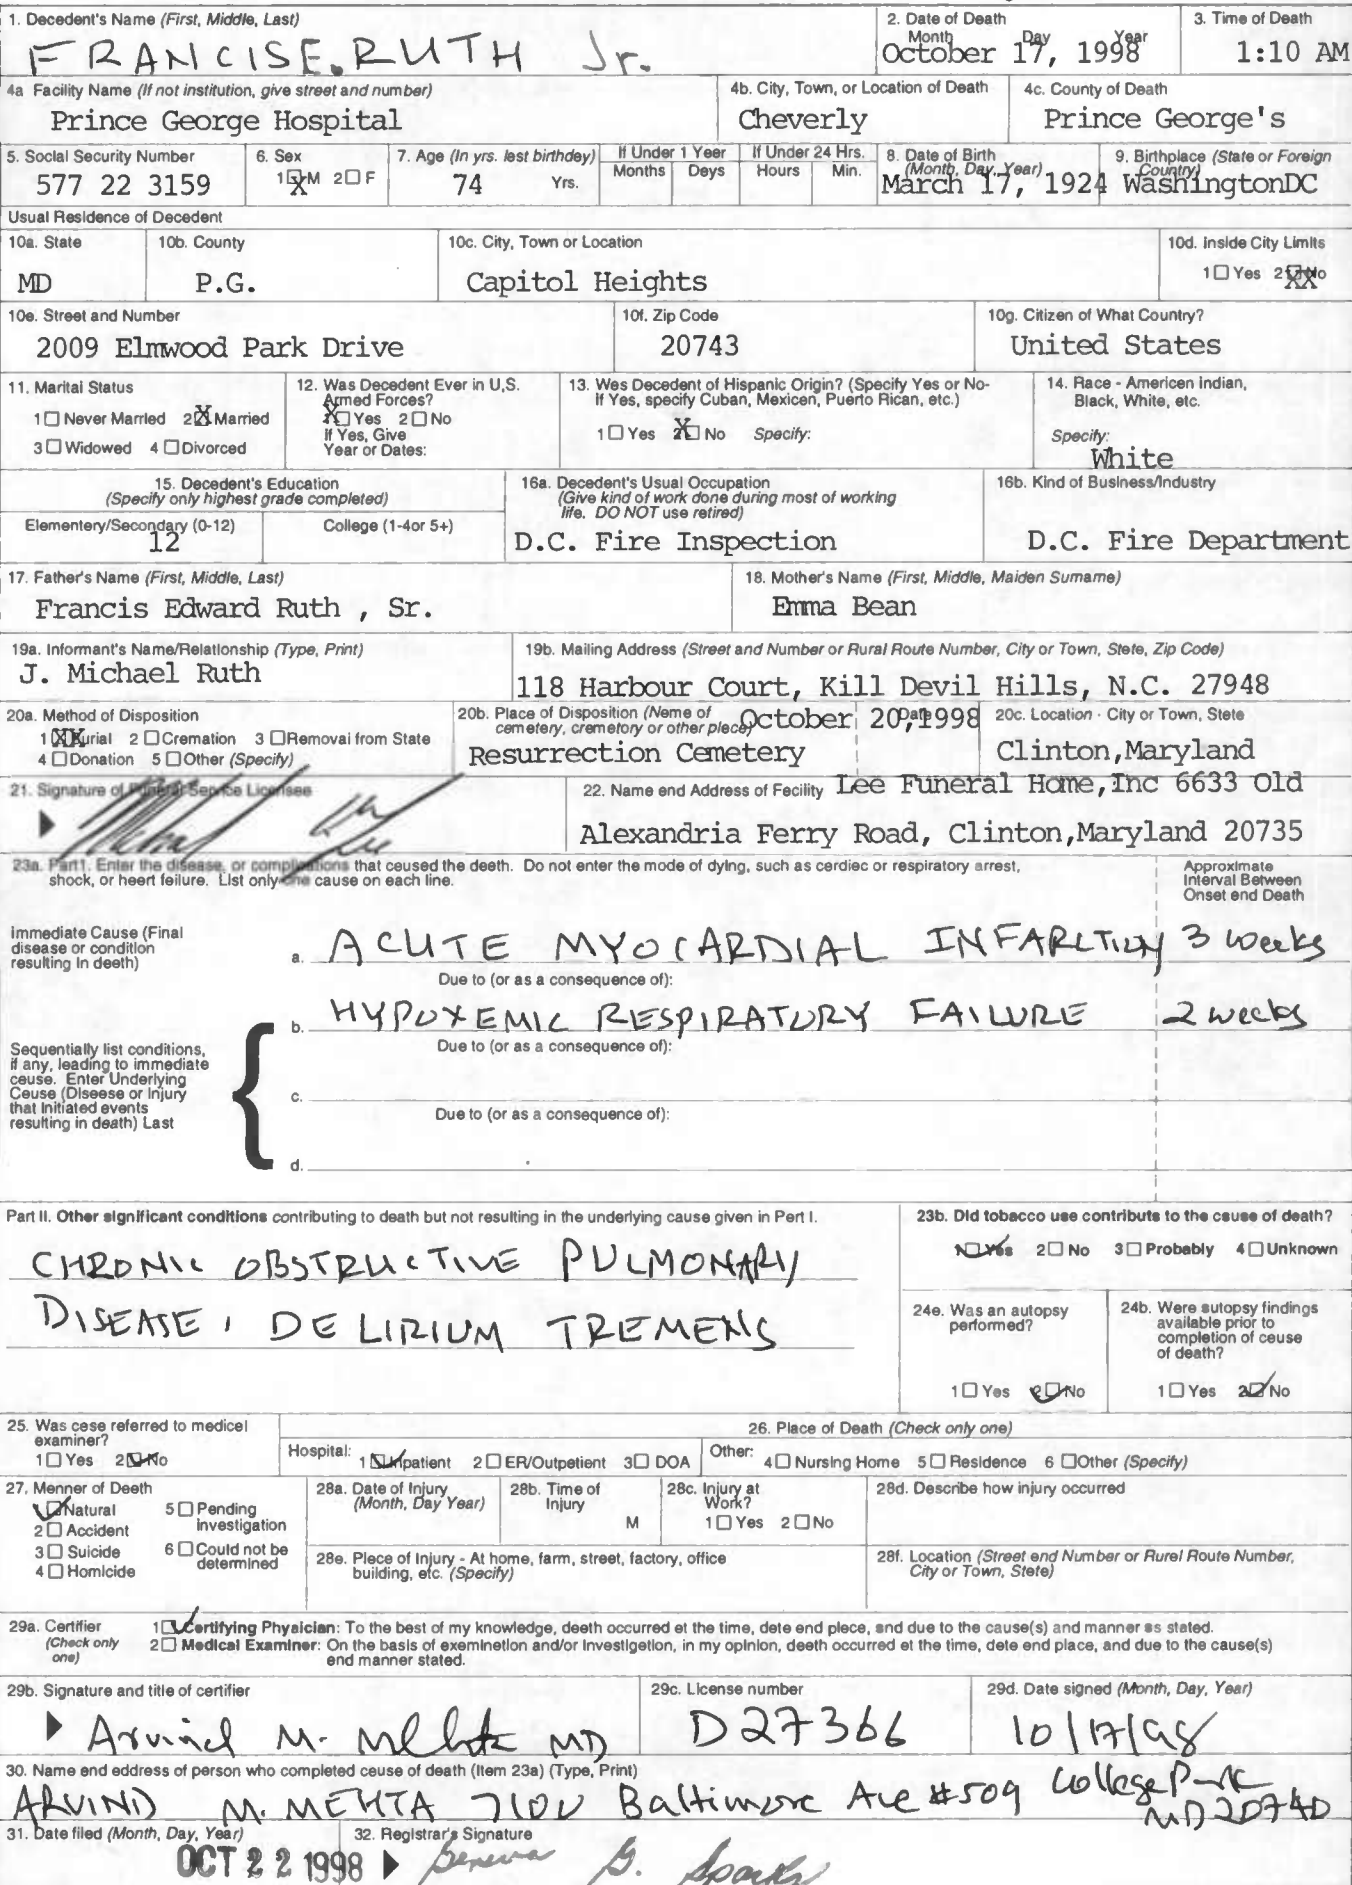 1. Decedent's Name (First, Middle, Last)
FRANCIS E. RUTH Jr.
2. Date of Death
Month Day Year
October 17, 1998
3. Time of Death
1:10 AM
4a Facility Name (If not institution, give street and number)
Prince George Hospital
4b. City, Town, or Location of Death
Cheverly
4c. County of Death
Prince George's
5. Social Security Number
577 22 3159
6. Sex
1 X M 2 □ F
7. Age (In yrs. last birthday)
74 Yrs.
If Under 1 Year
Months Days
If Under 24 Hrs.
Hours Min.
8. Date of Birth
(Month, Day, Year)
March 17, 1924
9. Birthplace (State or Foreign
Country)
WashingtonDC
Usual Residence of Decedent
10a. State
MD
10b. County
P.G.
10c. City, Town or Location
Capitol Heights
10d. Inside City Limits
1 □ Yes 2 XX No
10e. Street and Number
2009 Elmwood Park Drive
10f. Zip Code
20743
10g. Citizen of What Country?
United States
11. Marital Status
1 □ Never Married 2 X Married
3 □ Widowed 4 □ Divorced
12. Was Decedent Ever in U.S.
Armed Forces?
X Yes 2 □ No
If Yes, Give
Year or Dates:
13. Was Decedent of Hispanic Origin? (Specify Yes or No-
If Yes, specify Cuban, Mexican, Puerto Rican, etc.)
1 □ Yes 2 X No Specify:
14. Race - American Indian,
Black, White, etc.
Specify:
White
15. Decedent's Education
(Specify only highest grade completed)
Elementary/Secondary (0-12)
12
College (1-4or 5+)
16a. Decedent's Usual Occupation
(Give kind of work done during most of working
life. DO NOT use retired)
D.C. Fire Inspection
16b. Kind of Business/Industry
D.C. Fire Department
17. Father's Name (First, Middle, Last)
Francis Edward Ruth , Sr.
18. Mother's Name (First, Middle, Maiden Surname)
Emma Bean
19a. Informant's Name/Relationship (Type, Print)
J. Michael Ruth
19b. Mailing Address (Street and Number or Rural Route Number, City or Town, State, Zip Code)
118 Harbour Court, Kill Devil Hills, N.C. 27948
20a. Method of Disposition
1 XX Burial 2 □ Cremation 3 □ Removal from State
4 □ Donation 5 □ Other (Specify)
20b. Place of Disposition (Name of
cemetery, crematory or other place)
Resurrection Cemetery
Date
October 20, 1998
20c. Location - City or Town, State
Clinton,Maryland
21. Signature of Funeral Service Licensee
22. Name and Address of Facility Lee Funeral Home,Inc 6633 Old
Alexandria Ferry Road, Clinton,Maryland 20735
23a. Part1. Enter the disease, or complications that caused the death. Do not enter the mode of dying, such as cardiac or respiratory arrest,
shock, or heart failure. List only one cause on each line.
Approximate
Interval Between
Onset and Death
Immediate Cause (Final
disease or condition
resulting in death)
a. ACUTE MYOCARDIAL INFARCTION 3 weeks
Due to (or as a consequence of):
b. HYPOXEMIC RESPIRATORY FAILURE 2 weeks
Due to (or as a consequence of):
Sequentially list conditions,
if any, leading to immediate
cause. Enter Underlying
Cause (Disease or Injury
that initiated events
resulting in death) Last
c.
Due to (or as a consequence of):
d.
Part II. Other significant conditions contributing to death but not resulting in the underlying cause given in Part I.
CHRONIC OBSTRUCTIVE PULMONARY
DISEASE, DELIRIUM TREMENS
23b. Did tobacco use contribute to the cause of death?
1 ✓ Yes 2 □ No 3 □ Probably 4 □ Unknown
24a. Was an autopsy
performed?
1 □ Yes 2 ✓ No
24b. Were autopsy findings
available prior to
completion of cause
of death?
1 □ Yes 2 ✓ No
25. Was case referred to medical
examiner?
1 □ Yes 2 ✓ No
26. Place of Death (Check only one)
Hospital: 1 ✓ Inpatient 2 □ ER/Outpatient 3 □ DOA
Other: 4 □ Nursing Home 5 □ Residence 6 □ Other (Specify)
27. Manner of Death
1 ✓ Natural 5 □ Pending
investigation
2 □ Accident
3 □ Suicide 6 □ Could not be
determined
4 □ Homicide
28a. Date of Injury
(Month, Day Year)
28b. Time of
Injury
M
28c. Injury at
Work?
1 □ Yes 2 □ No
28d. Describe how injury occurred
28e. Place of Injury - At home, farm, street, factory, office
building, etc. (Specify)
28f. Location (Street and Number or Rural Route Number,
City or Town, State)
29a. Certifier
(Check only
one)
1 ✓ Certifying Physician: To the best of my knowledge, death occurred at the time, date and place, and due to the cause(s) and manner as stated.
2 □ Medical Examiner: On the basis of examination and/or investigation, in my opinion, death occurred at the time, date and place, and due to the cause(s)
and manner stated.
29b. Signature and title of certifier
Arvind M. Mehta MD
29c. License number
D27366
29d. Date signed (Month, Day, Year)
10/17/98
30. Name and address of person who completed cause of death (Item 23a) (Type, Print)
ARVIND M. MEHTA 7100 Baltimore Ave #509 College Park
MD 20740
31. Date filed (Month, Day, Year)
OCT 22 1998
32. Registrar's Signature
Geneva G. Sparks